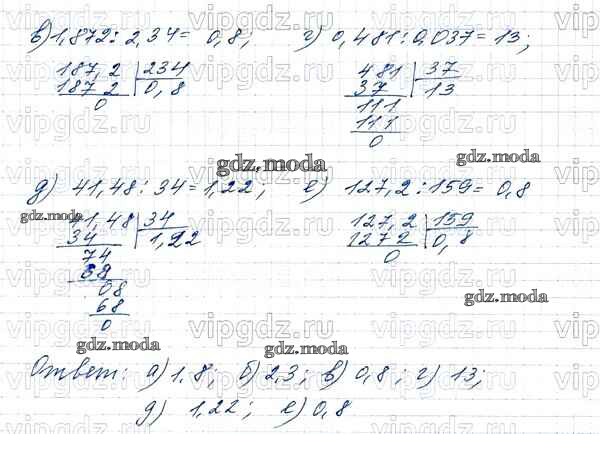 в) 1,872 : 2,34 = 0,8; г) 0,481 : 0,037 = 13;
187,2 234 481 37
187 2 0,8 37 13
0 111
111
0
gdz.moda
gdz.moda
д) 41,48 : 34 = 1,22; е) 127,2 : 159 = 0,8
gdz.moda
41,48 34 127,2 159
34 1,22 127 2 0,8
74 0
68
68
68
0
gdz.moda
gdz.moda
gdz.moda
Ответ: а) 1.8; б) 2,3; в) 0,8; г) 13;
д) 1,22; е) 0,8
vipgdz.ru